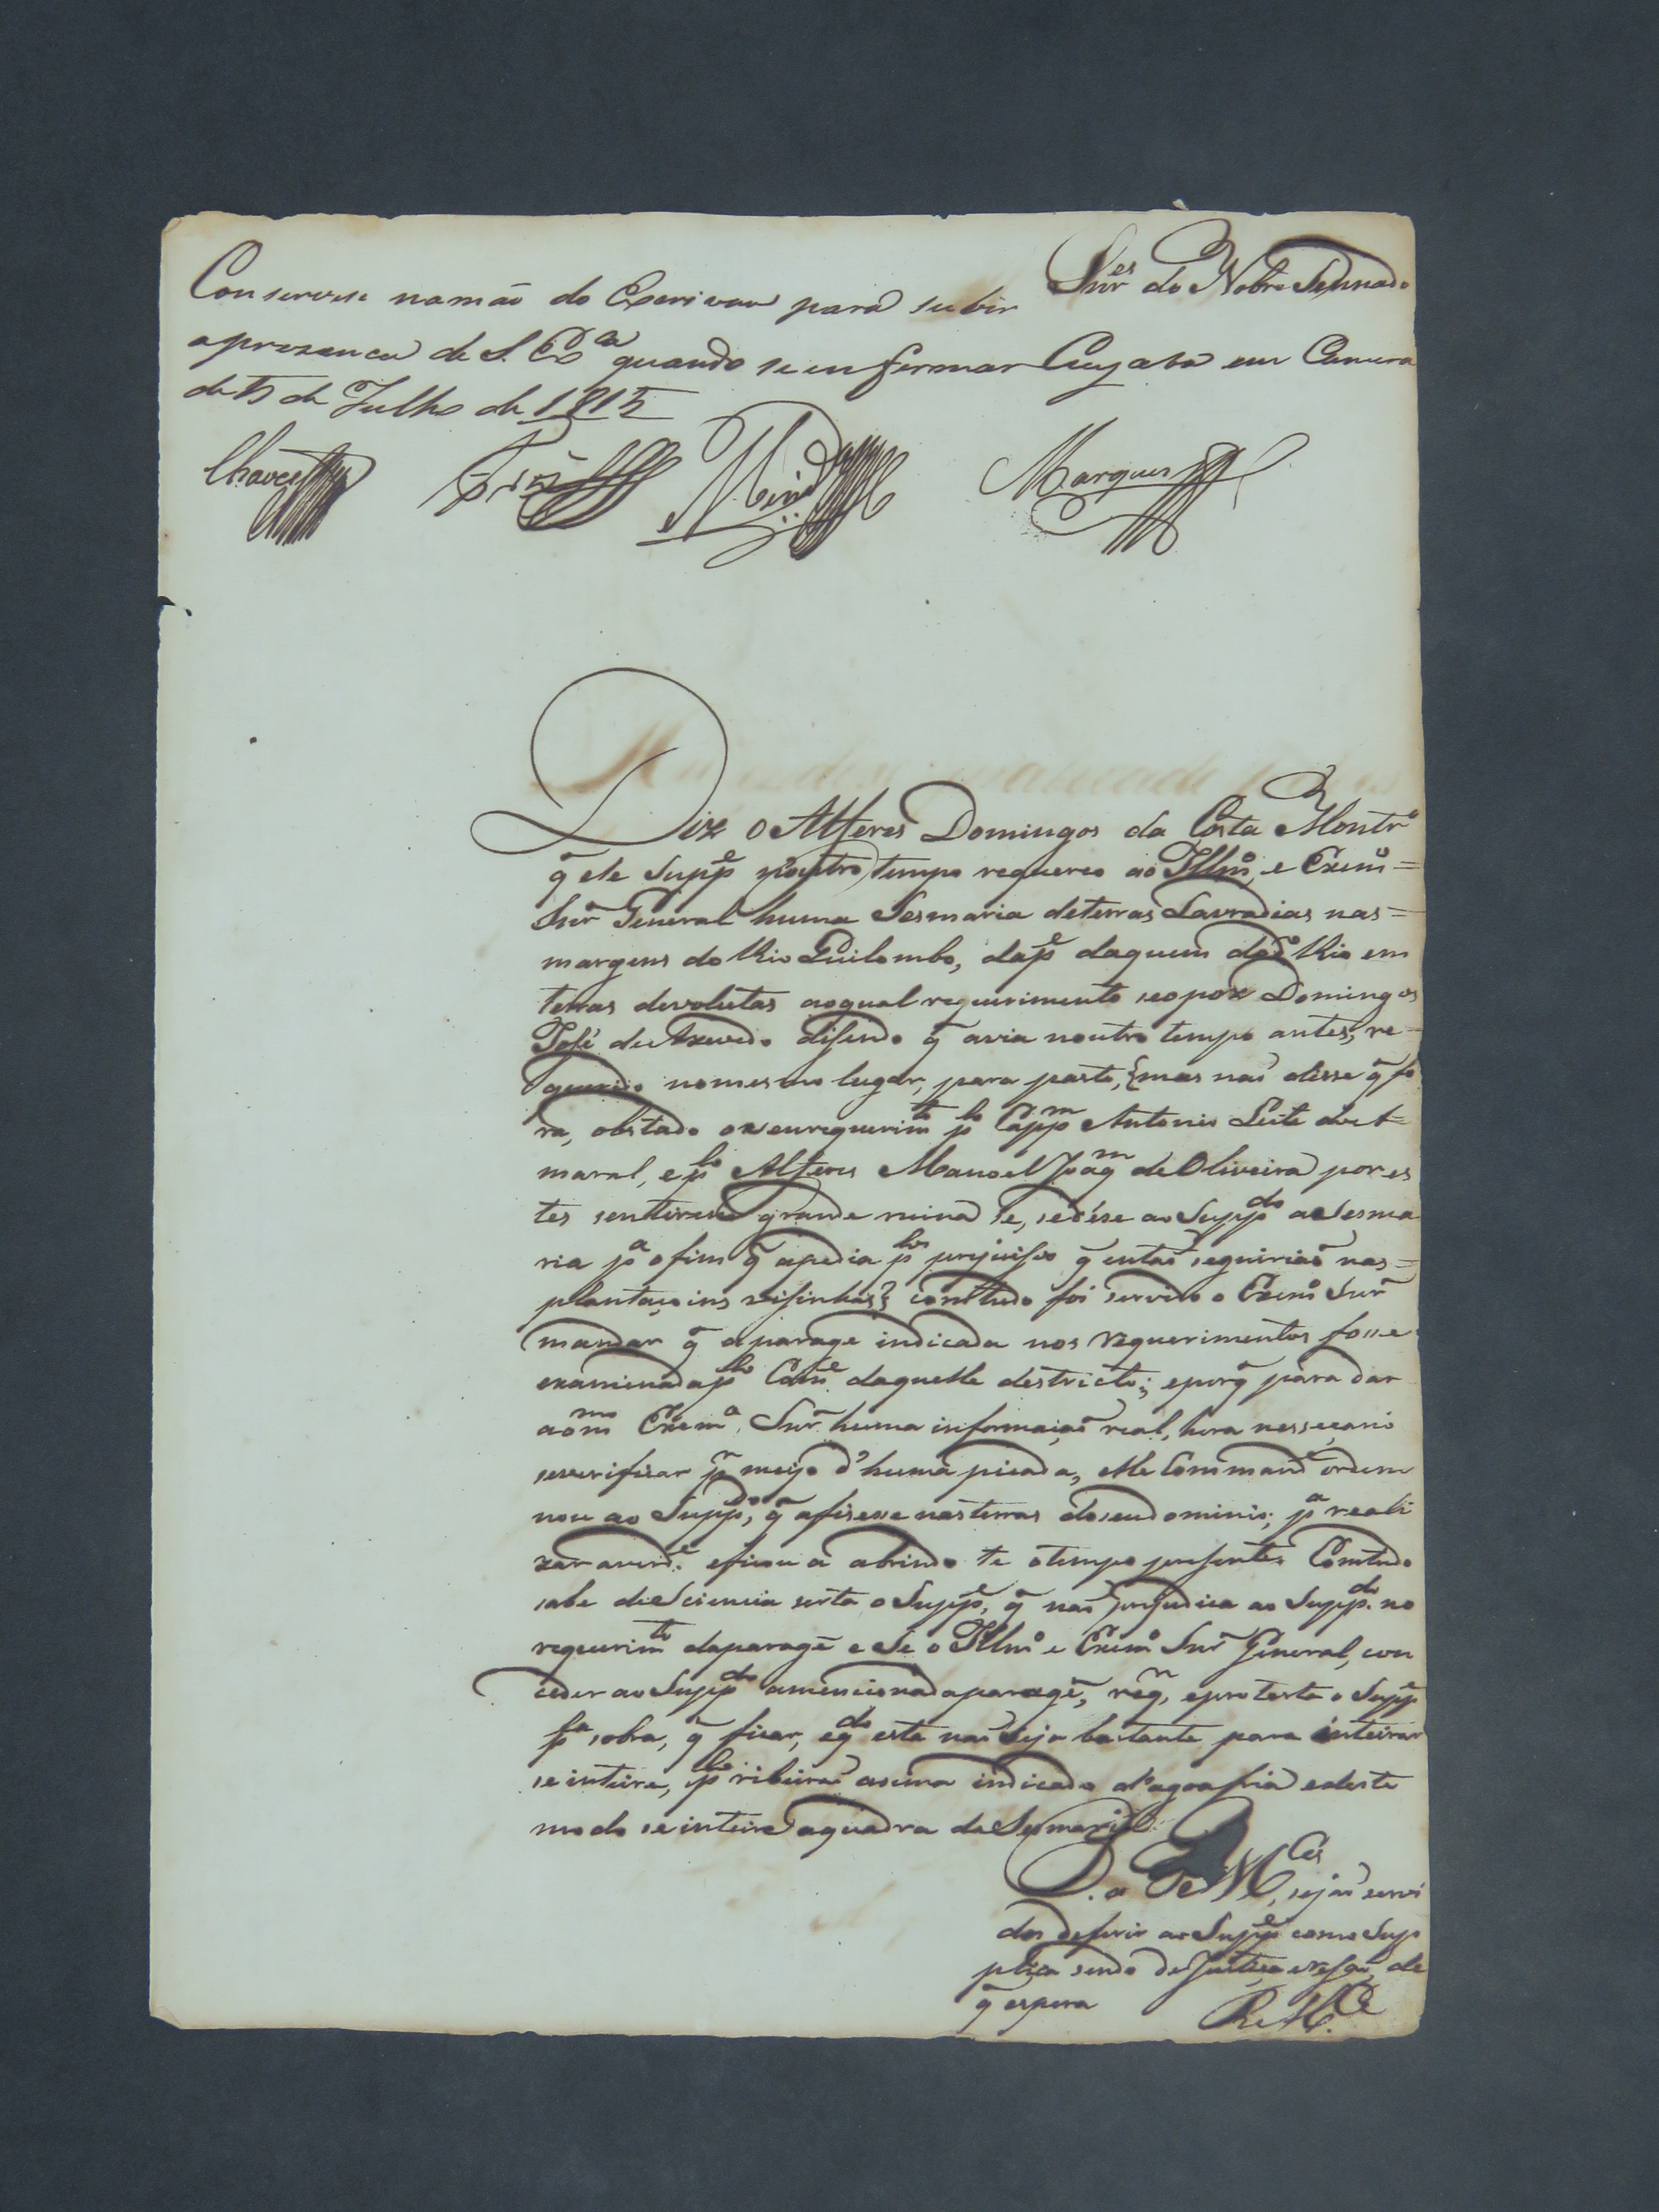 Snr.es do Nobre Sennado
Conservese namão do Escrivam para subir
apresenca de S. Ex.ca quando se enformar Cuyaba em Camera
de 15 de Julho de 1815
Chaves Marques
Diz o Alferes Domingos da Costa Montr.o
q̃ ele Supp.e noutro tempo requereo ao Illm.o e Exm.o =
Snr̃ General huma Sesmaria deterras Lavradias nas =
margens do Rio Quilombo, dap.e daquem do d.o Rio em
terras devolutas aoqual requerimento seopox Domingos
José de Azevedo disendo q̃ avia noutro tempo antes, re =
querido nomesmo lugar, para pasto, {mas naõ disse q̃ fo
ra, obstado oseurequerim.to p.lo Capp.m Antonio Leite de A =
maral, e p.lo Alferes Manoel Joaq.m de Oliveira por es
tes sentirem grande ruina se, sedése ao Supp.do a Sesma
ria p.a ofim q̃ apedia p.los prejuisos q̃ entaõ seguiriaõ nas =
plantaçoins visinhas} comtudo foi servido o Exm.o Snr̃
mandar q̃ aparage indicada nos requerimentos fosse
examinada p.lo Com.e daquelle destricto; eporq̃ para dar
ao m.mo Exm.o Snr̃ huma informaçaõ real, hera nessecario
severificar p.r meyo d'huma picada, elle Command.e ordem
nou ao Supp.do, q̃ afisese nasterras doseudominio, p.a reali
zar averd.e eficou a abrindo te otempo presente. Comtudo
sabe de Sciencia serta o Supp.e, q̃ naõ prejudica ao Supp.do no
requerim.to daparage e Se o Illm.o e Exm.o Snr̃ General, con
ceder ao Supp.do amencionadaparage, req.r, eprotesta o Supp.e
p.la sobra, q̃ ficar, e q.do esta naõ seja bastante para inteirar
se inteire, p.lo ribeiraõ asima indicado d'agoafria edeste
modo se inteire aquadra da Sesmaria
P. a V.es M.ces sejaõ servi
dos deferir ao Supp.e como Sup
plica sendo de Justiça do
q̃ espera R. M.ce